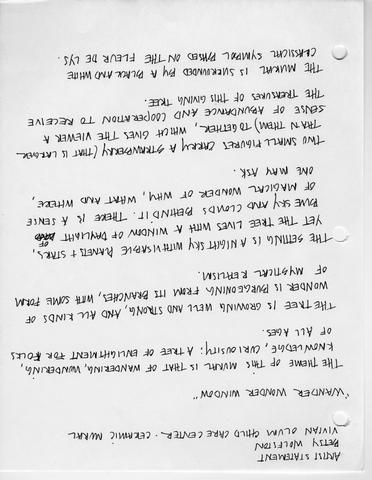 ARTIST STATEMENT
BETSY WOLFSTON
VIVIAN OLUM CHILD CARE CENTER - CERAMIC MURAL
"WANDER WONDER WINDOW"
THE THEME OF THIS MURAL IS THAT OF WANDERING, WONDERING,
KNOWLEDGE, CURIOUSITY: A TREE OF ENLIGHTMENT FOR FOLKS
OF ALL AGES.
THE TREE IS GROWING WELL AND STRONG, AND ALL KINDS OF
WONDER IS BURGEONING FROM ITS BRANCHES, WITH SOME FORM
OF MYSTICAL REALISM.
THE SETTING IS A NIGHT SKY WITH VISABLE PLANETS + STARS,
YET THE TREE LIVES WITH A WINDOW OF DAYLIGHT OF
BLUE SKY AND CLOUDS BEHIND IT. THERE IS A SENSE
OF MAGICAL WONDER OF WHY, WHAT AND WHERE,
ONE MAY ASK.
TWO SMALL FIGURES CARRY A STRAWBERRY (THAT IS LARGER
THAN THEM) TOGETHER, WHICH GIVES THE VIEWER A
SENSE OF ABUNDANCE AND COOPERATION TO RECEIVE
THE TREASURES OF THIS GIVING TREE.
THE MURAL IS SURROUNDED BY A BLACK AND WHITE
CLASSICAL SYMBOL BASED ON THE FLEUR DE LYS.